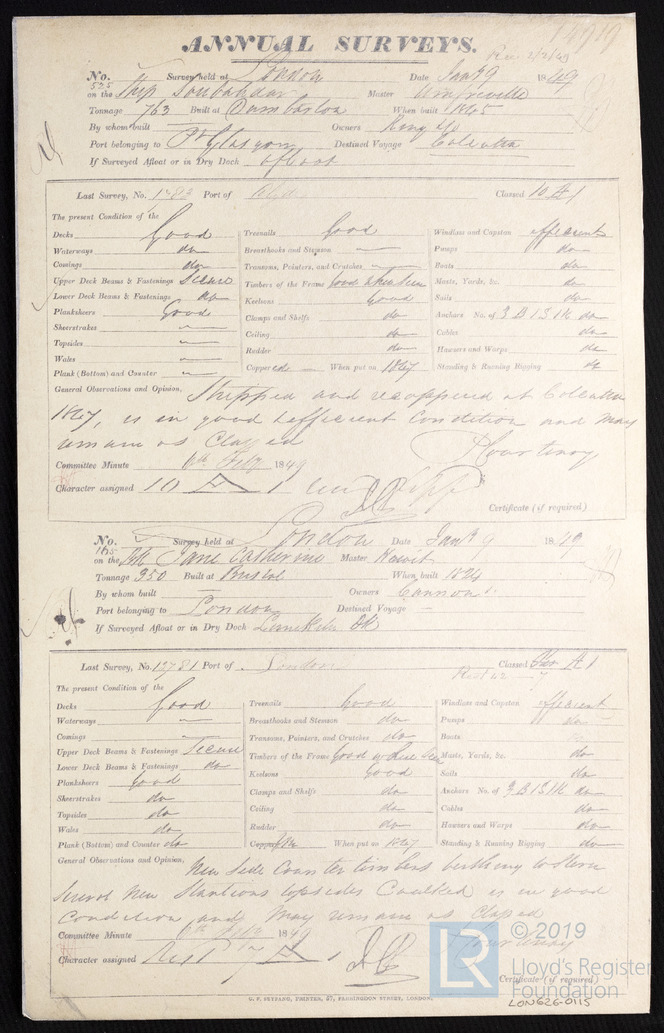 14919
ANNUAL SURVEYS.
Rec 2/2/49
No. 535 Survey held at London Date Jany 9 1849
on the Ship Soubahdar Master Umfreville
Tonnage 763 Built at Dumbarton When built 1845
By whom built — Owners King &Co
Port belonging to Pt Glasgow Destined Voyage Calcutta
If Surveyed Afloat or in Dry Dock afloat
Last Survey, No. 1783 Port of Classed 10 A 1
The present Condition of the
Decks Good Treenails Good Windlass and Capstan efficient
Waterways do Breasthooks and Stemson — Pumps do
Comings do Transoms, Pointers, and Crutches — Boats do
Upper Deck Beams & Fastenings Secure Timbers of the Frame Good where seen Masts, Yards, &c. do
Lower Deck Beams & Fastenings do Keelsons Good Sails do
Planksheers Good Clamps and Shelfs do Anchors No. of 3 B 1 S 1 K do
Sheerstrakes — Ceiling do Cables do
Topsides — Rudder do Hawsers and Warps do
Wales — Coppered — When put on 1847 Standing & Running Rigging do
Plank (Bottom) and Counter —
General Observations and Opinion, Stripped and recoppered at Calcutta
1847, is in good & efficient condition and may
remain as Classed
Courtenay
Committee Minute 6th Feby 1849
Character assigned 10 A 1
Certificate (if required)
No. 165 Survey held at London Date Jany 9 1849
on the Bk Jane Catherine Master
Tonnage 350 Built at Bristol When built 1824
By whom built — Owners Cannon
Port belonging to London Destined Voyage —
If Surveyed Afloat or in Dry Dock Limekiln Dk
Last Survey, No. 13781 Port of London Classed A 1
Rest 42 — 7
The present Condition of the
Decks Good Treenails Good Windlass and Capstan efficient
Waterways — Breasthooks and Stemson do Pumps do
Comings — Transoms, Pointers, and Crutches do Boats
Upper Deck Beams & Fastenings Secure Timbers of the Frame Good where seen Masts, Yards, &c. do
Lower Deck Beams & Fastenings do Keelsons Good Sails do
Planksheers Good Clamps and Shelfs do Anchors No. of 3 B 1 S 1 K do
Sheerstrakes do Ceiling do Cables do
Topsides do Rudder do Hawsers and Warps do
Wales do Copper When put on 1847 Standing & Running Rigging do
Plank (Bottom) and Counter do
General Observations and Opinion, New Side Counter timbers berthing to Stern
Several New Stantions topsides Caulked is in good
Condition and May remain as Classed
Courtenay
Committee Minute 6th Feby 1849
Character assigned Rest 7 A 1
Certificate (if required)
G. F. SEYFANG, PRINTER, 57, FARRINGDON STREET, LONDON.
© 2019
LR
Lloyd's Register
Foundation
LON626-0115